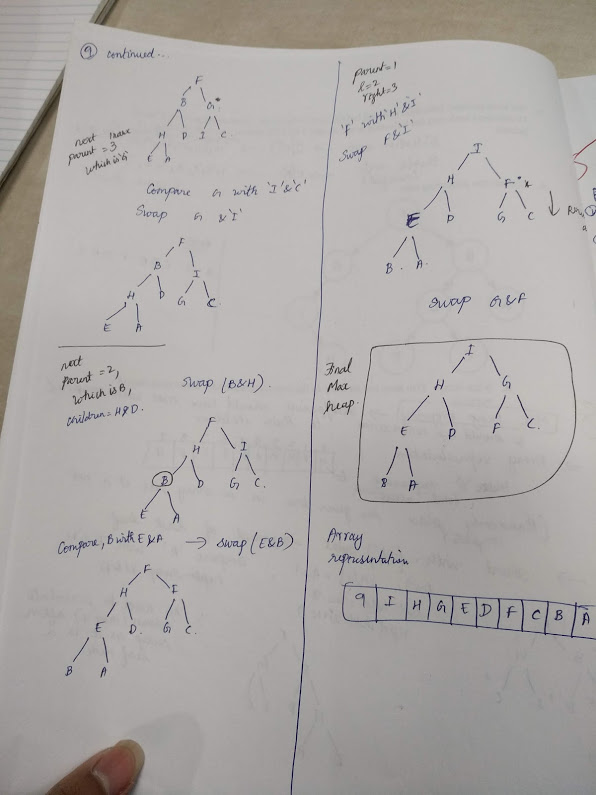 9 continued...
F
B G*
H D I C
E A
next
parent = 3
which is 'G'
Compare G with 'I' & 'C'
Swap G & 'I'
F
B I
H D G C.
E A
next
parent = 2,
which is B,
children = H & D.
Swap (B&H).
F
H I
B D G C.
E A
Compare, B with E & A → swap (E&B)
F
H I
E D. G C.
B A
parent = 1
l = 2
right = 3
'F' with 'H' & 'I'
Swap F & 'I'
I
H F**
E D G C
B. A.
swap G & F
Final
Max
heap.
I
H G
E D F C.
B A
Array
representation
9 I H G E D F C B A